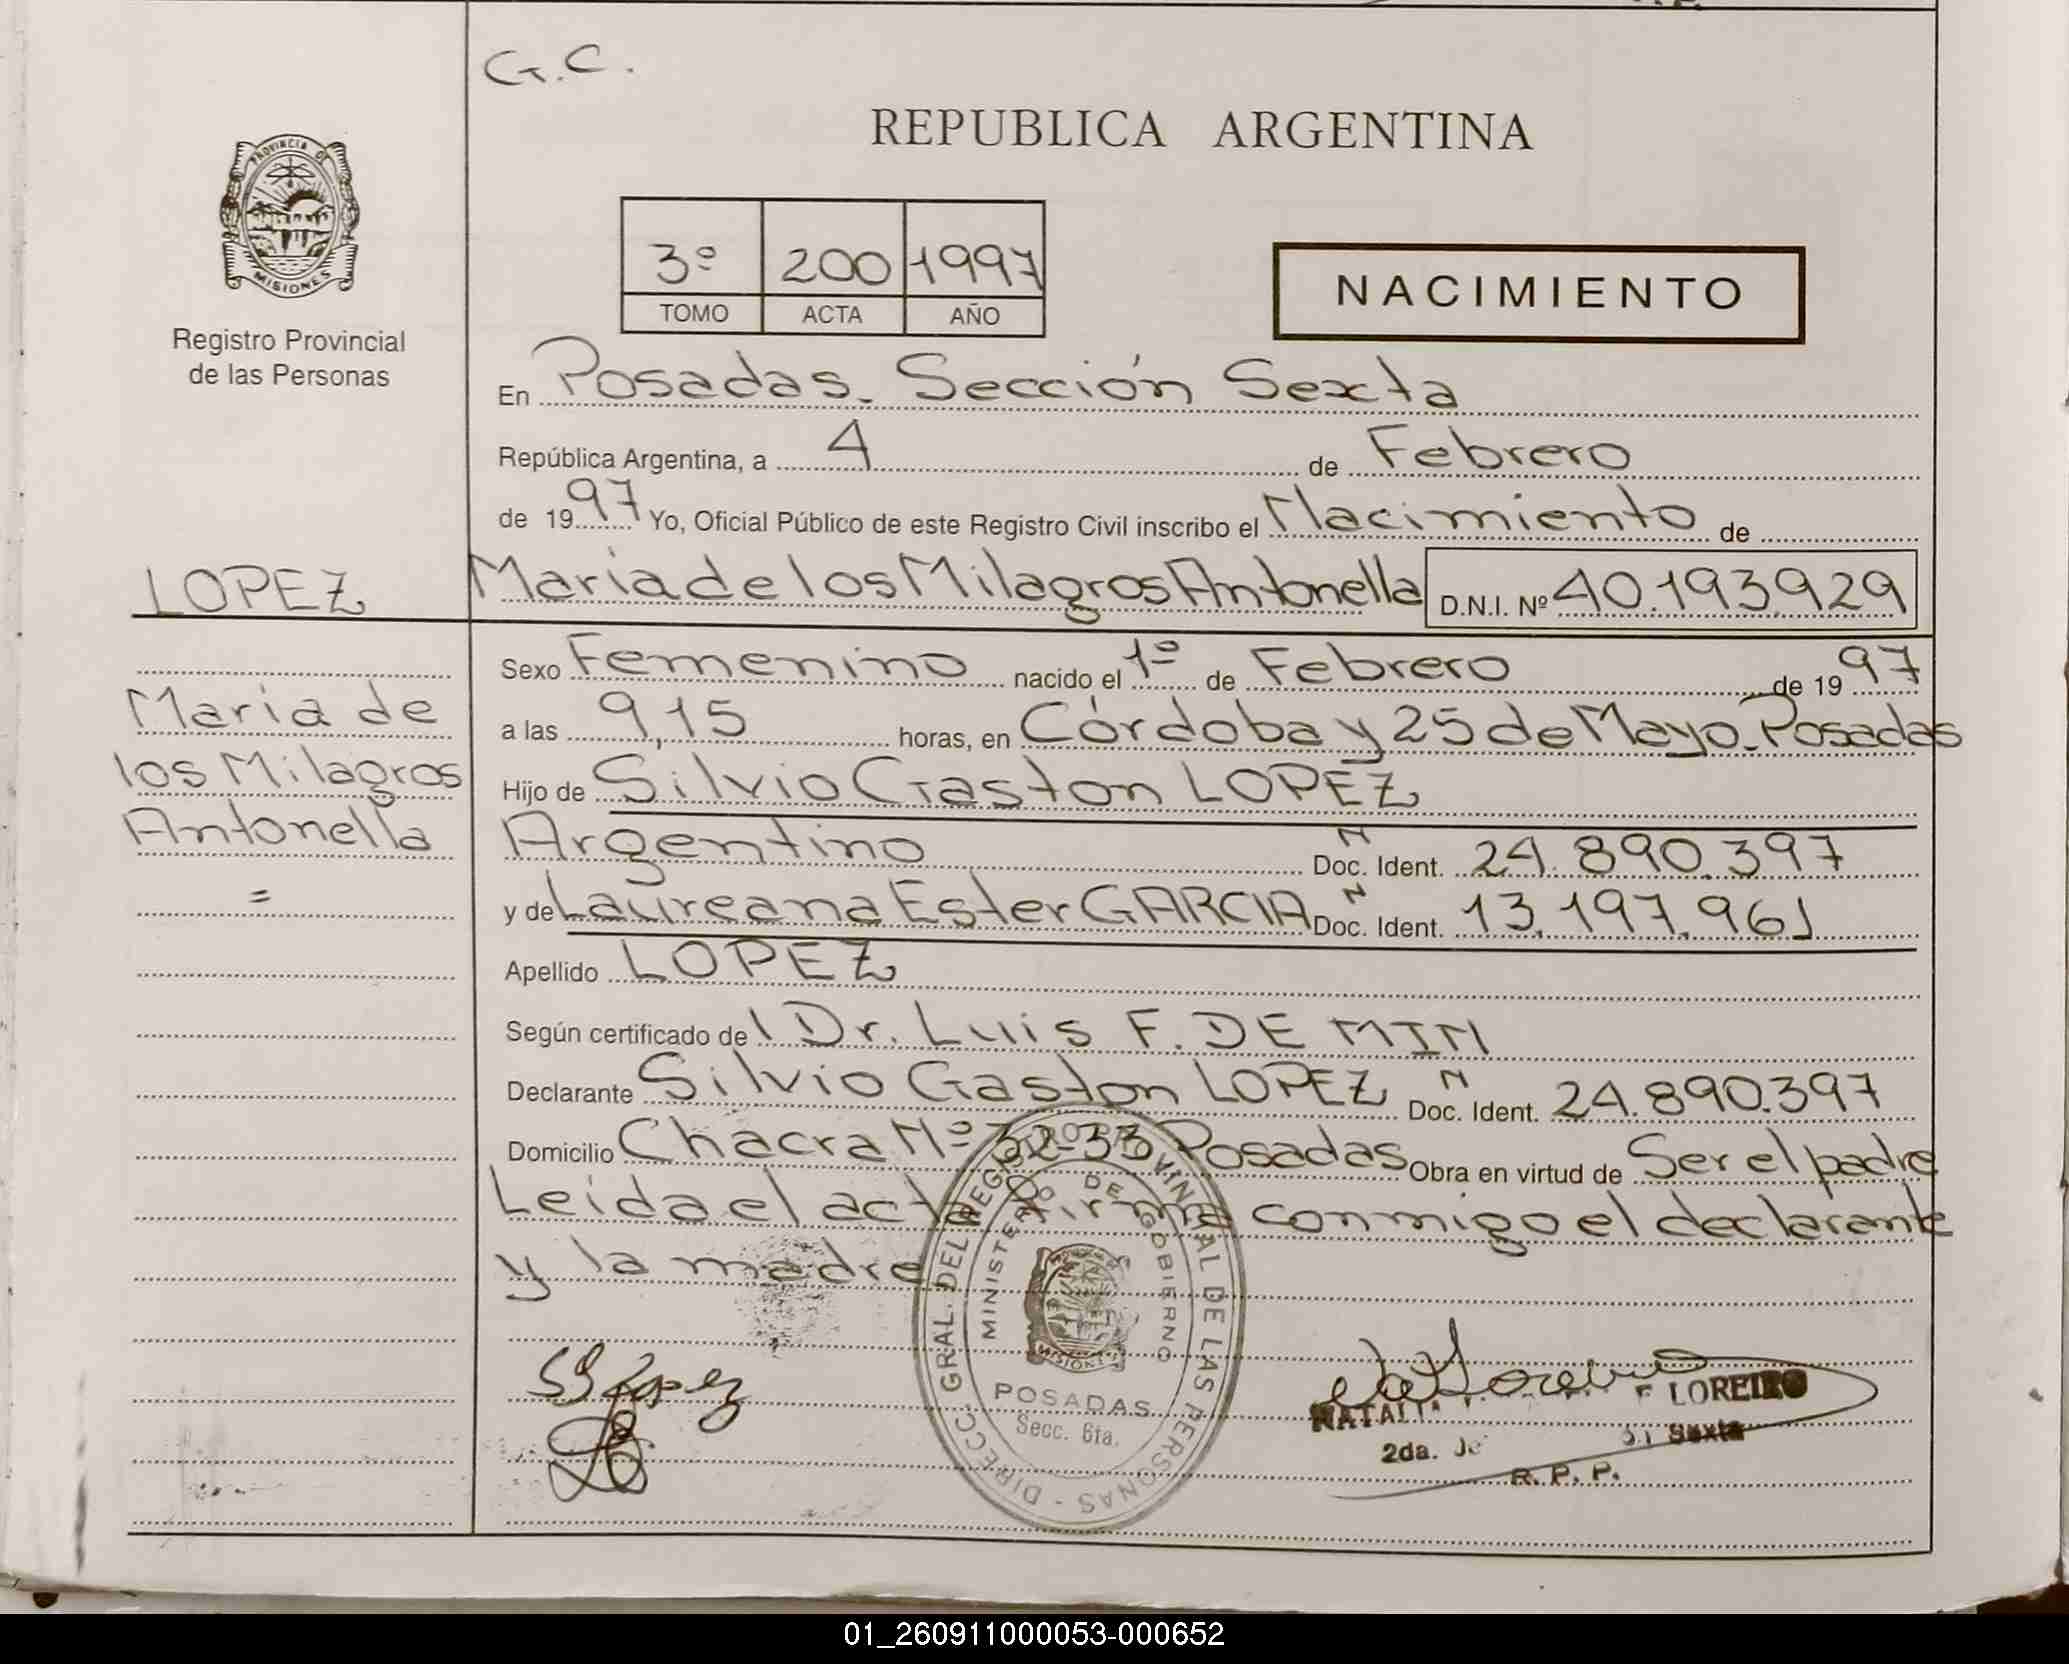 G.C.
REPUBLICA ARGENTINA
PROVINCIA DE
MISIONES
Registro Provincial
de las Personas
3º 200 1997
TOMO ACTA AÑO
NACIMIENTO
En Posadas. Sección Sexta
República Argentina, a 4 de Febrero
de 1997 Yo, Oficial Público de este Registro Civil inscribo el Nacimiento de
LOPEZ María de los Milagros Antonella D.N.I. Nº 40.193.929
Sexo Femenino nacido el 1º de Febrero de 1997
María de
los Milagros
Antonella
=
a las 9,15 horas, en Córdoba y 25 de Mayo. Posadas
Hijo de Silvio Gaston LOPEZ
Argentino N Doc. Ident. 24.890.397
y de Laureana Ester GARCIA N Doc. Ident. 13.197.961
Apellido LOPEZ
Según certificado del Dr. Luis F. DE MIN
Declarante Silvio Gaston LOPEZ N Doc. Ident. 24.890.397
Domicilio Chacra Nº 32-33 Posadas Obra en virtud de Ser el padre
Leída el acta firma conmigo el declarante
y la madre
DIRECC. GRAL. DEL REG. PROVINCIAL DE LAS PERSONAS -
MINISTERIO DE GOBIERNO
MISIONES
POSADAS
Secc. 6ta.
SG Lopez
LOREIRO
2da. Sexta
R. P. P.
01_260911000053-000652